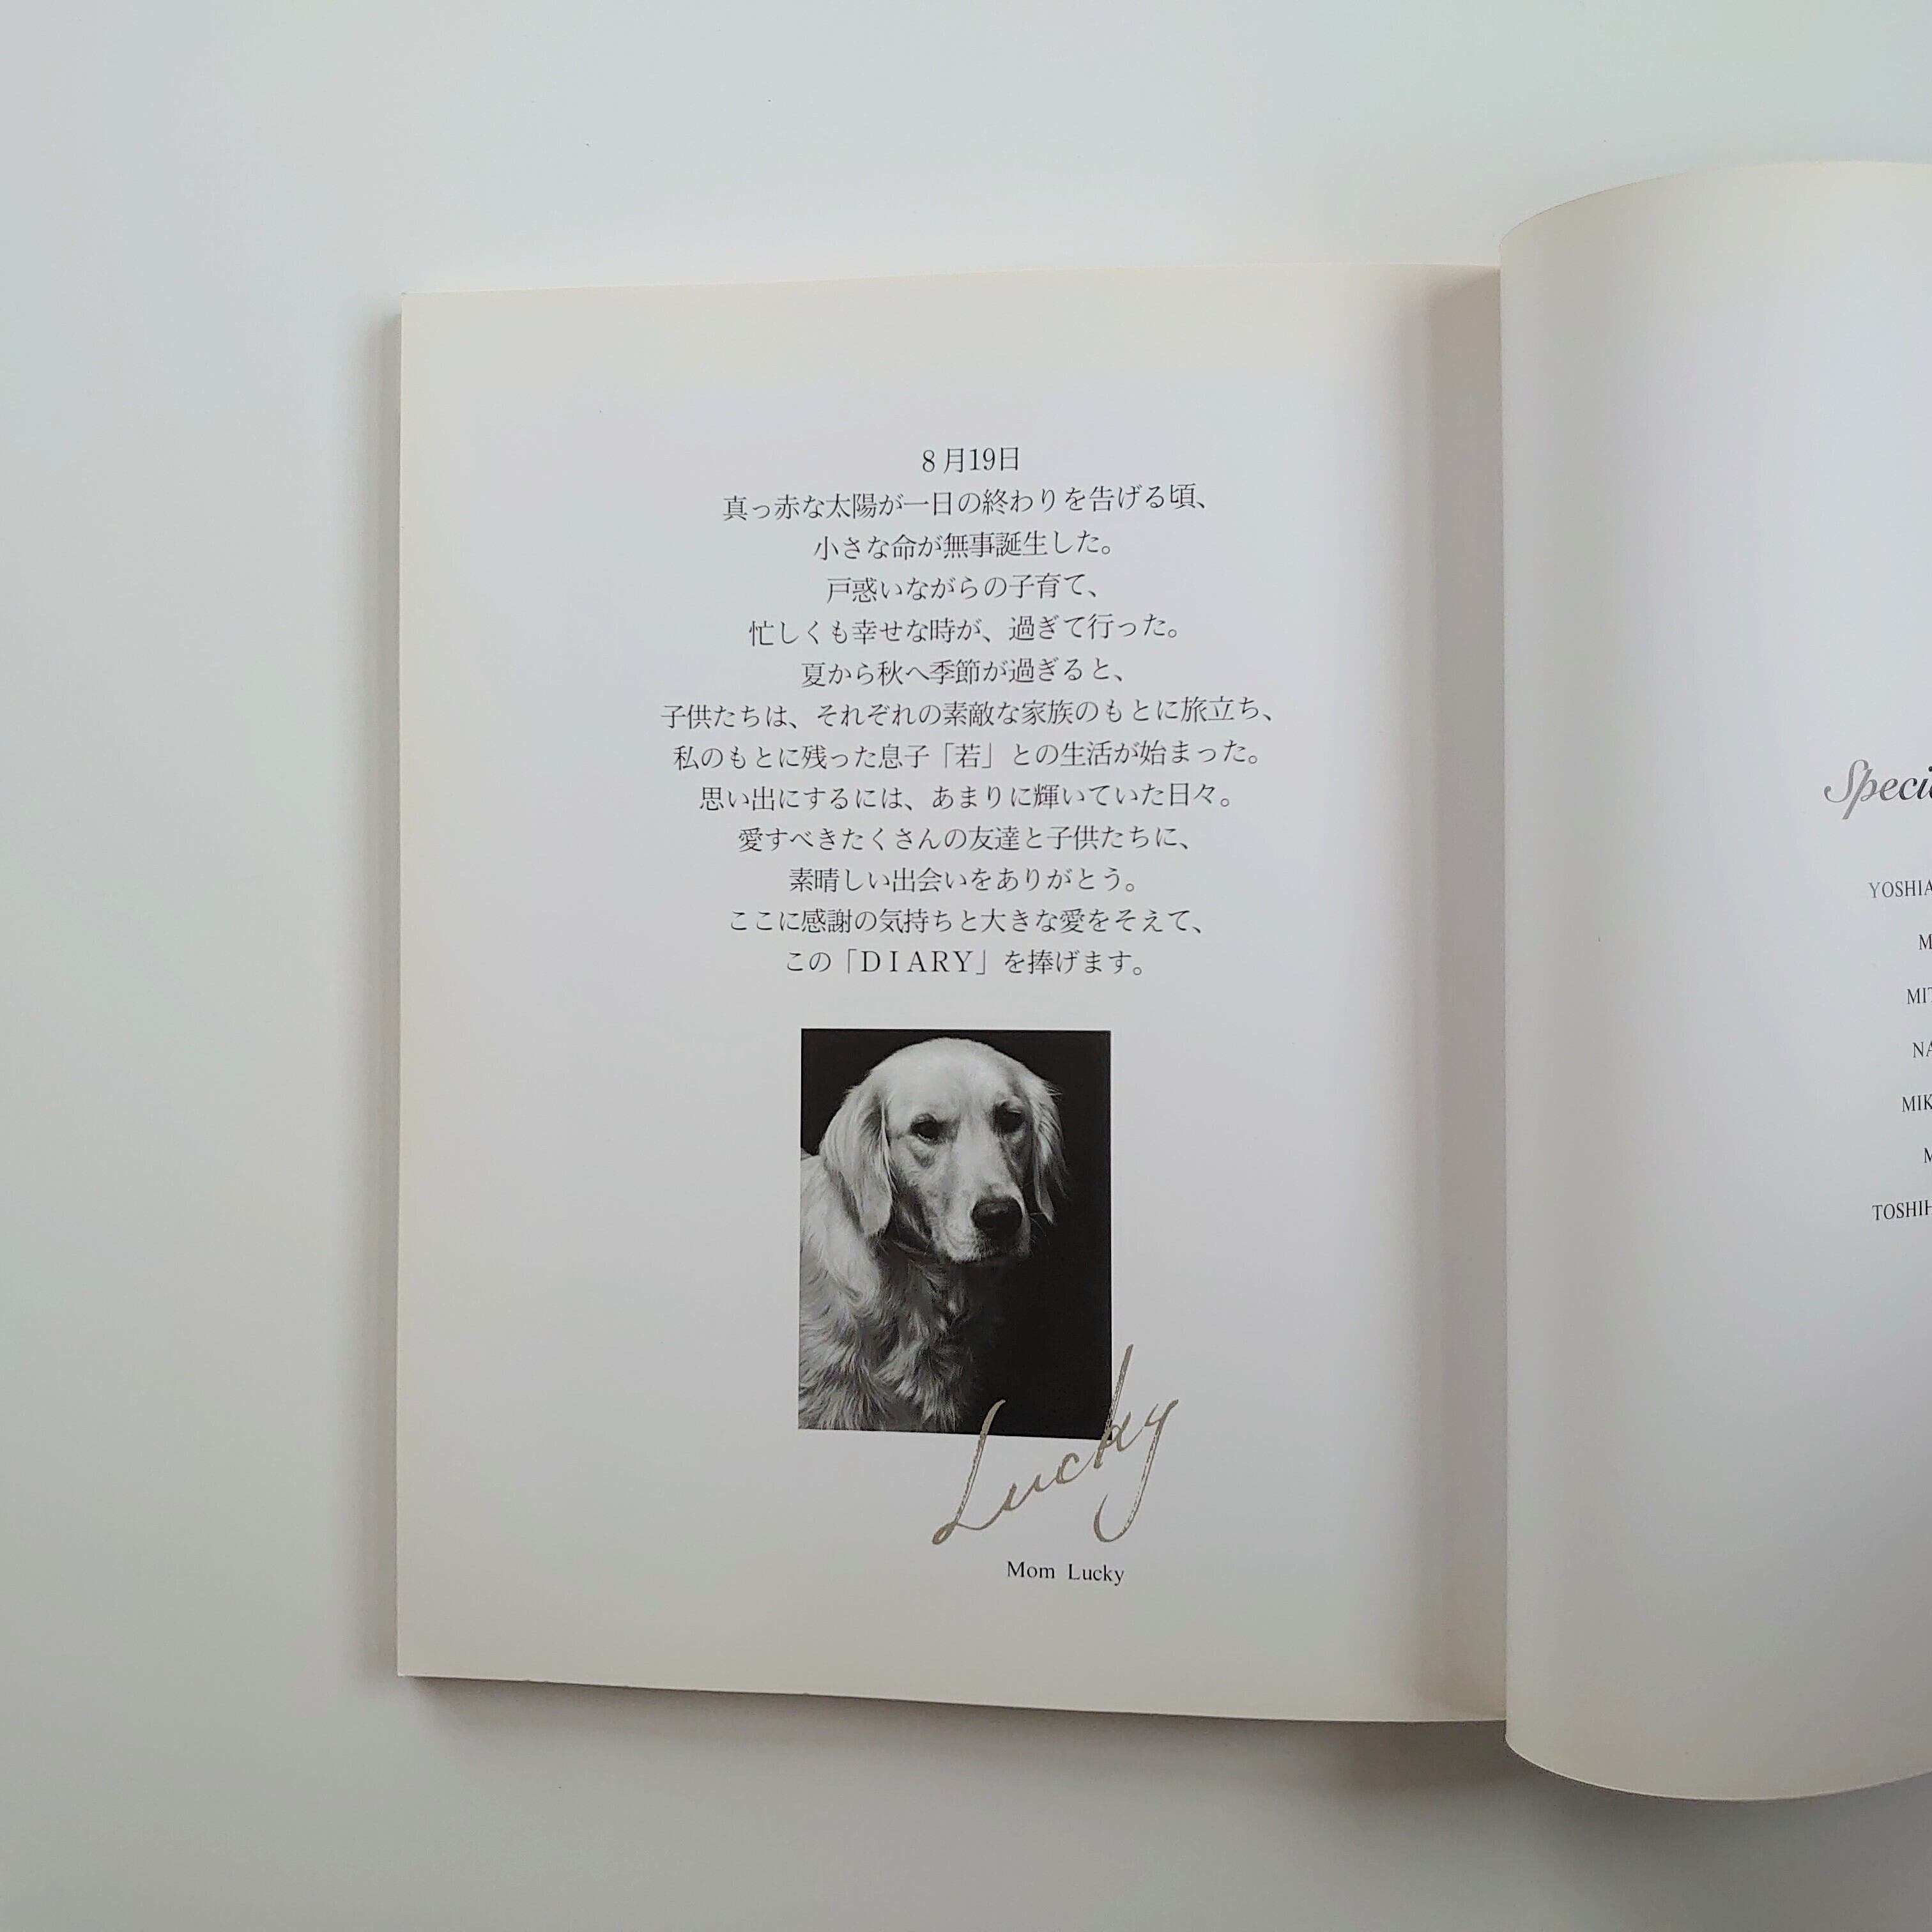 8月19日
真っ赤な太陽が一日の終わりを告げる頃、
小さな命が無事誕生した。
戸惑いながらの子育て、
忙しくも幸せな時が、過ぎて行った。
夏から秋へ季節が過ぎると、
子供たちは、それぞれの素敵な家族のもとに旅立ち、
私のもとに残った息子「若」との生活が始まった。
思い出にするには、あまりに輝いていた日々。
愛すべきたくさんの友達と子供たちに、
素晴しい出会いをありがとう。
ここに感謝の気持ちと大きな愛をそえて、
この「DIARY」を捧げます。
Lucky
Mom Lucky